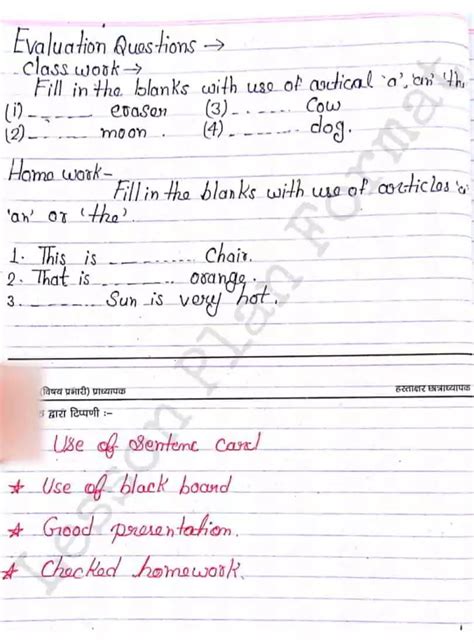 Evaluation Questions →
Class work →
Fill in the blanks with use of artical 'a', 'an' 'the
(1) ------- eraser (3) ------- Cow
(2) ------- moon. (4) ------- dog.
Home work -
Fill in the blanks with use of articles 'a'
'an' or 'the'.
1. This is ---------- Chair.
2. That is --------- orange.
3. -------- Sun is very hot.
(विषय प्रभारी) प्राध्यापक हस्ताक्षर छात्राध्यापक
द्वारा टिप्पणी :-
Use of Sentenc card
★ Use of black board
★ Good presentation.
★ Checked homework.
Lesson Plan Format